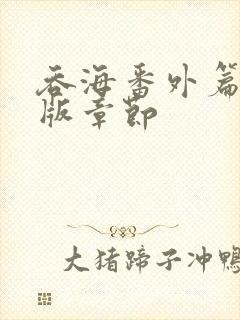 吞海番外篇
版章節
大猪蹄子冲鴨